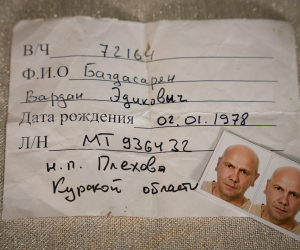 В/Ч 72164
Ф.И.О Багдасарян
Вардан Эдикович
Дата рождения 02.01.1978
Л/Н МТ 936432
н.п. Плехова
Курской области